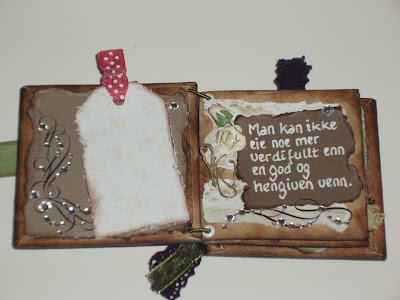 Man kan ikke
eie noe mer
verdifullt enn
en god og
hengiven venn.